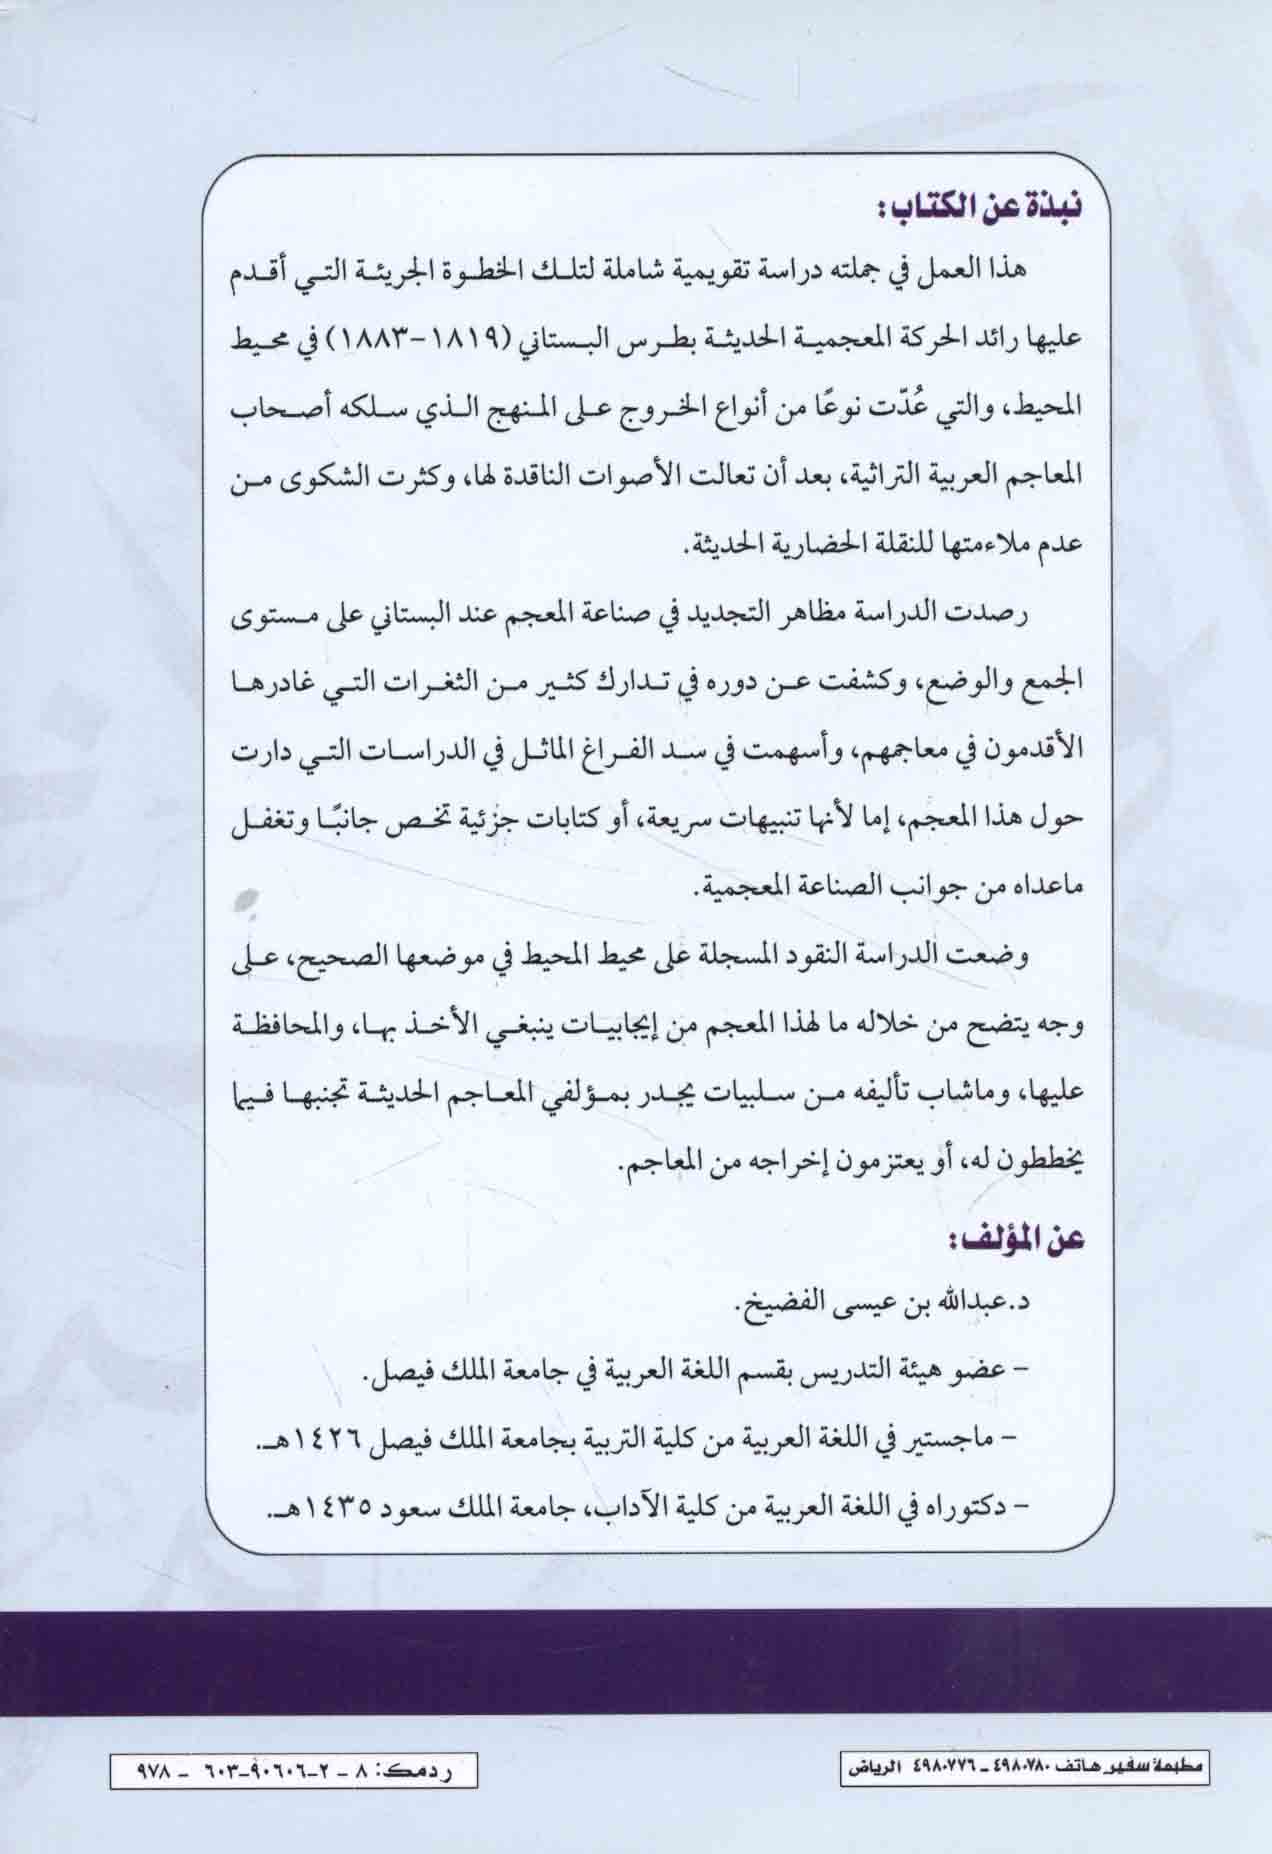 نبذة عن الكتاب:
هذا العمل في جملته دراسة تقويمية شاملة لتلك الخطوة الجريئة التي أقدم
عليها رائد الحركة المعجمية الحديثة بطرس البستاني (١٨١٩-١٨٨٣) في محيط
المحيط، والتي عُدّت نوعًا من أنواع الخروج على المنهج الذي سلكه أصحاب
المعاجم العربية التراثية، بعد أن تعالت الأصوات الناقدة لها، وكثرت الشكوى من
عدم ملاءمتها للنقلة الحضارية الحديثة.
رصدت الدراسة مظاهر التجديد في صناعة المعجم عند البستاني على مستوى
الجمع والوضع، وكشفت عن دوره في تدارك كثير من الثغرات التي غادرها
الأقدمون في معاجمهم، وأسهمت في سد الفراغ الماثل في الدراسات التي دارت
حول هذا المعجم، إما لأنها تنبيهات سريعة، أو كتابات جزئية تخص جانبًا وتغفل
ماعداه من جوانب الصناعة المعجمية.
وضعت الدراسة النقود المسجلة على محيط المحيط في موضعها الصحيح، على
وجه يتضح من خلاله ما لهذا المعجم من إيجابيات ينبغي الأخذ بها، والمحافظة
عليها، وماشاب تأليفه من سلبيات يجدر بمؤلفي المعاجم الحديثة تجنبها فيما
يخططون له، أو يعتزمون إخراجه من المعاجم.
عن المؤلف:
د.عبدالله بن عيسى الفضيخ.
- عضو هيئة التدريس بقسم اللغة العربية في جامعة الملك فيصل.
- ماجستير في اللغة العربية من كلية التربية بجامعة الملك فيصل ١٤٢٦هـ.
- دكتوراه في اللغة العربية من كلية الآداب، جامعة الملك سعود ١٤٣٥هـ.
مطبعة سفير هاتف ٤٩٨٠٧٨٠ - ٤٩٨٠٧٧٦ الرياض
ردمك: ٨ - ٢-٩٠٦٠٦-٦٠٣ - ٩٧٨